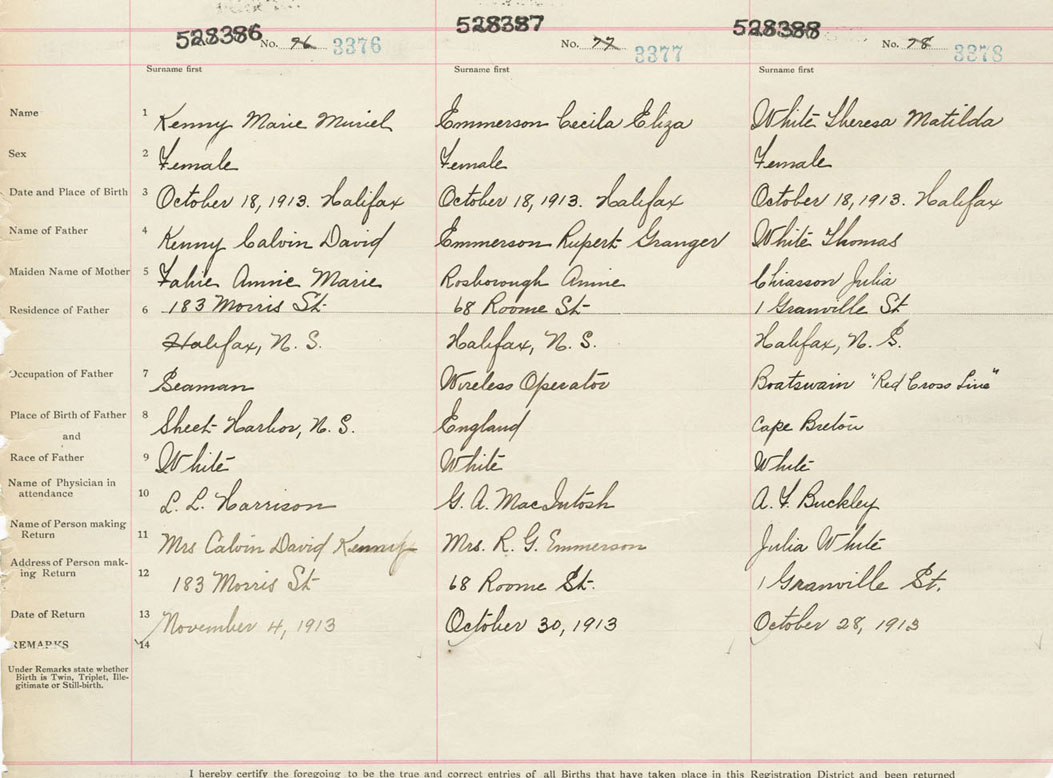 528386 No. 76 3376
528387 No. 77 3377
528388 No. 78 3378
Surname first Surname first Surname first
Name 1 Kenny Marie Muriel Emmerson Cecila Eliza White Theresa Matilda
Sex 2 Female Female Female
Date and Place of Birth 3 October 18, 1913. Halifax October 18, 1913. Halifax October 18, 1913. Halifax
Name of Father 4 Kenny Calvin David Emmerson Rupert Granger White Thomas
Maiden Name of Mother 5 Fahie Annie Marie Rosborough Annie Chiasson Julia
Residence of Father 6 183 Morris St 68 Roome St 1 Granville St
Halifax, N. S. Halifax, N. S. Halifax, N. S.
Occupation of Father 7 Seaman Wireless Operator Boatswain "Red Cross Line"
Place of Birth of Father 8 Sheet Harbor, N. S. England Cape Breton
and
Race of Father 9 White White White
Name of Physician in
attendance 10 L. L. Harrison G. A. MacIntosh A. F. Buckley
Name of Person making
Return 11 Mrs Calvin David Kenny Mrs. R. G. Emmerson Julia White
Address of Person mak-
ing Return 12 183 Morris St 68 Roome St. 1 Granville St.
Date of Return 13 November 4, 1913 October 30, 1913 October 28, 1913
REMARKS 14
Under Remarks state whether
Birth is Twin, Triplet, Ille-
gitimate or Still-birth.
I hereby certify the foregoing to be the true and correct entries of all Births that have taken place in this Registration District and been returned